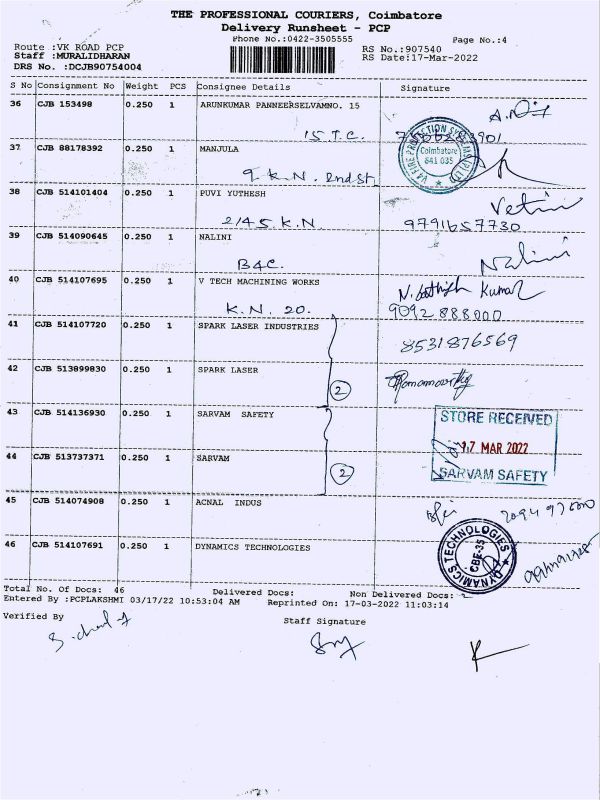 THE PROFESSIONAL COURIERS, Coimbatore
Delivery Runsheet - PCP
Phone No.:0422-3505555
Page No.:4
Route :VK ROAD PCP
RS No.:907540
Staff :MURALIDHARAN
RS Date:17-Mar-2022
DRS No. :DCJB90754004
S No Consignment No Weight PCS Consignee Details Signature
36 CJB 153498 0.250 1 ARUNKUMAR PANNEERSELVAMNO. 15
15 T.C.
V4 FIRE PROTECTION SYSTEMS
Coimbatore
641 035
37 CJB 88178392 0.250 1 MANJULA
9. K.N. 2nd St.
38 CJB 514101404 0.250 1 PUVI YUTHESH
2/45 K.N. 9791657730
39 CJB 514090645 0.250 1 NALINI Nalini
B4C.
40 CJB 514107695 0.250 1 V TECH MACHINING WORKS N. Kumar
K.N. 20. 9092888000
41 CJB 514107720 0.250 1 SPARK LASER INDUSTRIES 8531876569
42 CJB 513899830 0.250 1 SPARK LASER
2
43 CJB 514136930 0.250 1 SARVAM SAFETY
STORE RECEIVED
17 MAR 2022
SARVAM SAFETY
44 CJB 513737371 0.250 1 SARVAM
2
45 CJB 514074908 0.250 1 ACNAL INDUS
46 CJB 514107691 0.250 1 DYNAMICS TECHNOLOGIES
DYNAMICS TECHNOLOGIES
CBE-35
Total No. Of Docs: 46 Delivered Docs: Non Delivered Docs:
Entered By :PCPLAKSHMI 03/17/22 10:53:04 AM Reprinted On: 17-03-2022 11:03:14
Verified By
Staff Signature